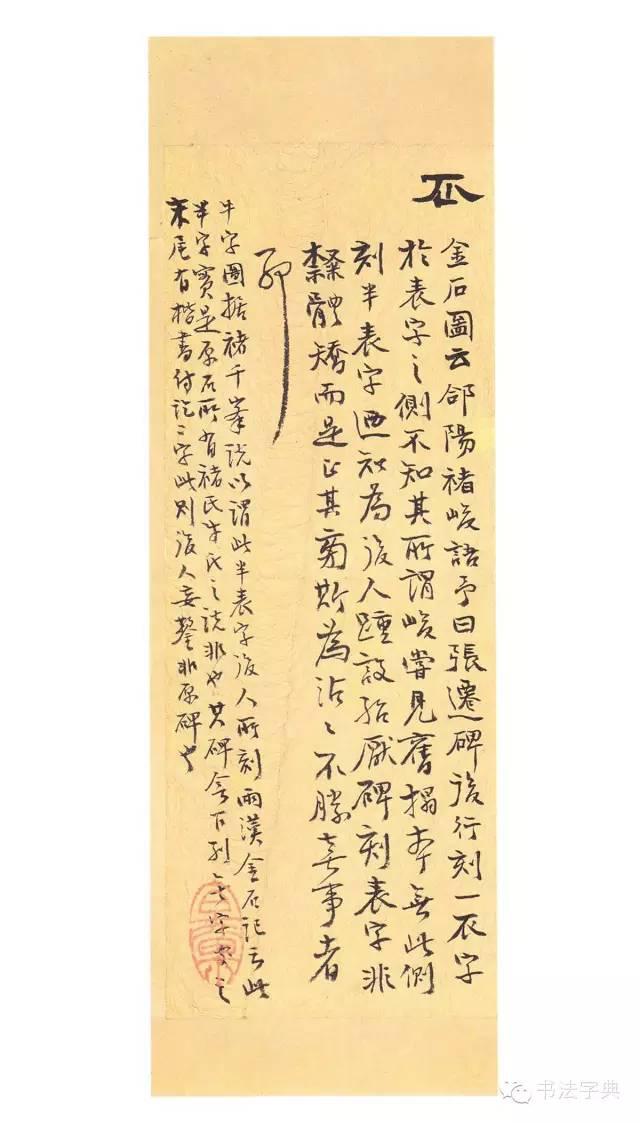 金石圖云郃陽褚峻語予曰張遷碑後行刻一衣字
於表字之側不知其所謂峻嘗見舊搨本無此側
刻半表字迺知為後人踵設殆厭碑刻表字非
隸體矯而是正其旁斯為沾沾不勝喜事者
耶
半字圖據褚千峯說以謂此半表字後人所刻兩漢金石記云此
半字實是原石所有褚氏牛氏之說非也其碑
末尾有楷書字此則後人妄鑿非原碑也
书法字典